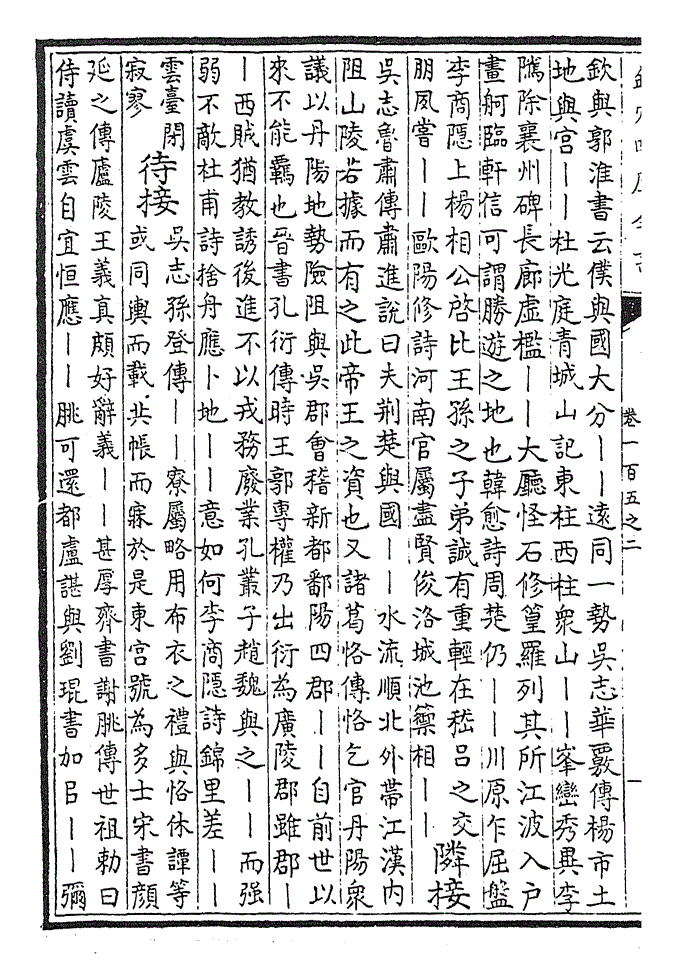 欽定四庫全書 卷一百五之二
欽與郭淮書云僕與國大分丨丨遠同一勢吳志華覈傳楊市土
地與宫丨丨杜光庭青城山記東柱西柱衆山丨丨峯巒秀異李
隲除襄州碑長廊虚檻丨丨大廳怪石修篁羅列其所江波入戶
畫舸臨軒信可謂勝遊之地也韓愈詩周楚仍丨丨川原乍屈盤
李商隱上楊相公啓比王孫之子弟誠有重輕在嵇吕之交
朋夙嘗丨丨歐陽修詩河南官屬盡賢俊洛城池籞相丨丨
隣接
吳志魯肅傳肅進說曰夫荆楚與國丨丨水流順北外帶江漢内
阻山陵若據而有之此帝王之資也又諸葛恪傳恪乞官丹陽衆
議以丹陽地勢險阻與吳郡會稽新都鄱陽四郡丨丨自前世以
來不能羈也晉書孔衍傳時王郭專權乃出衍為廣陵郡雖郡丨
丨西賊猶教誘後進不以戎務廢業孔叢子趙魏與之丨丨而强
弱不敵杜甫詩捨舟應卜地丨丨意如何李商隱詩錦里差丨丨
雲臺閉
寂寥
待接
吳志孫登傳丨丨寮屬略用布衣之禮與恪休譚等
或同輿而載共帳而寐於是東宫號為多士宋書顔
延之傳廬陵王義真頗好辭義丨丨甚厚齊書謝朓傳世祖勅曰
侍讀虞雲自宜恒應丨丨朓可還都盧諶與劉琨書加㠯丨丨彌